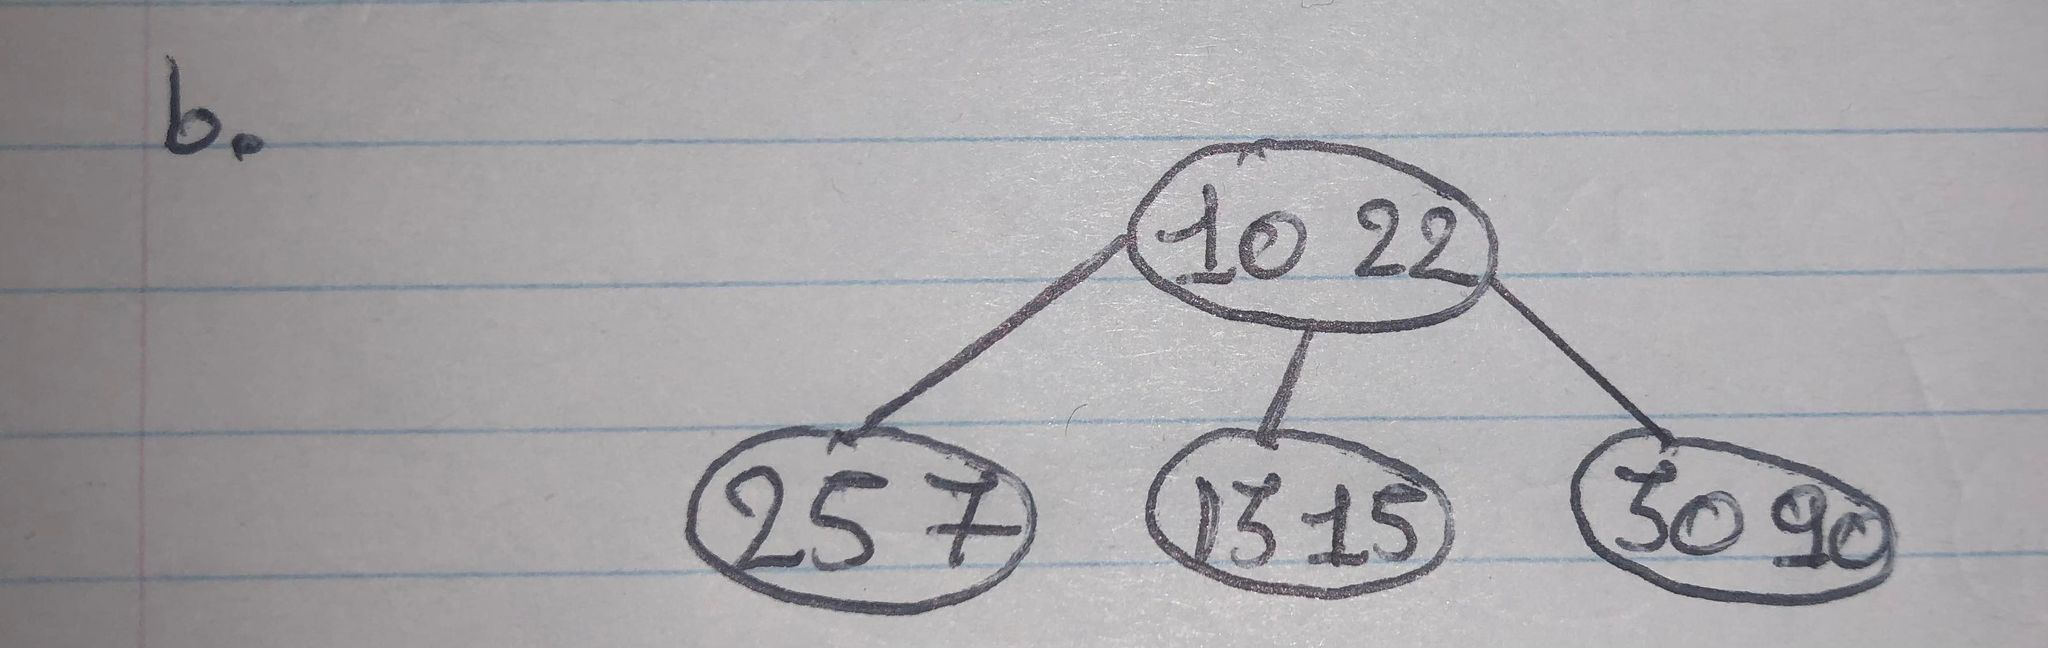 b.
10 22
2 5 7
13 15
30 90